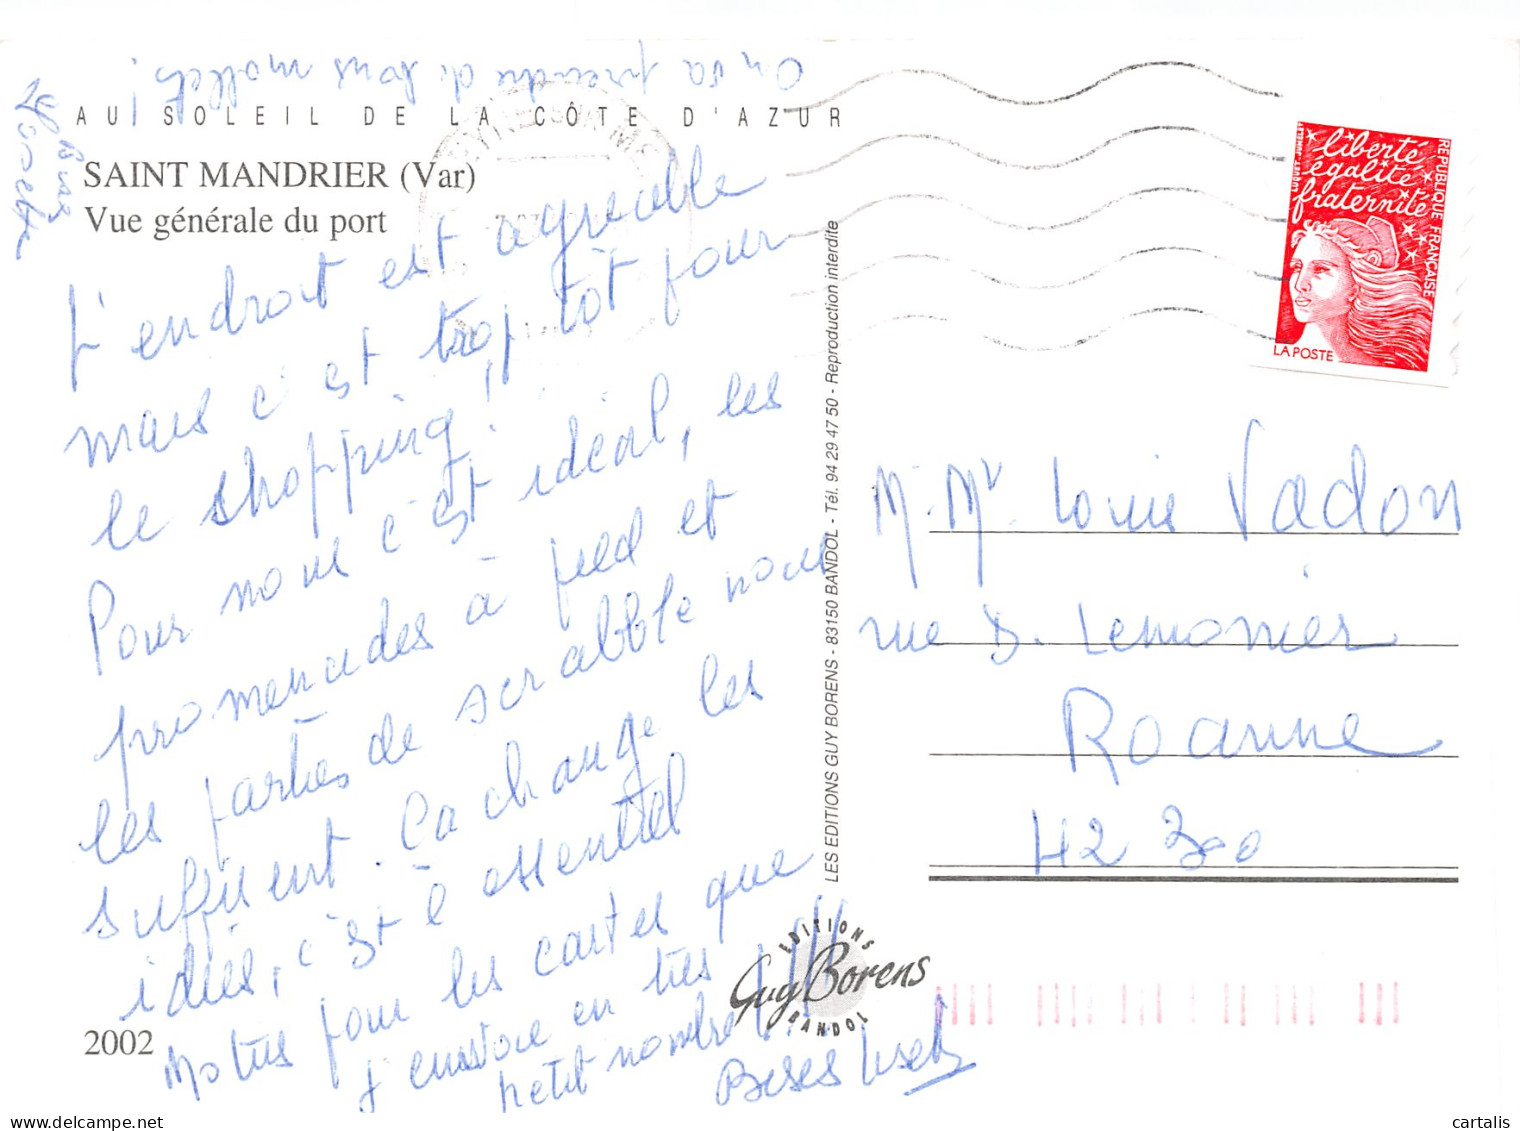 On va prendre de bons mollets !
AU SOLEIL DE LA CÔTE D'AZUR
SAINT MANDRIER (Var)
Vue générale du port
L'endroit est agréable
mais c'est trop tôt pour
le shopping !
Pour nous c'est idéal, les
promenades à pied et
les parties de scrabble nous
suffisent. Ca change les
idées, c'est l'essentiel
Motus pour les cartes que
j'envoie en très
petit nombre !!!
Bises
2002
LES EDITIONS GUY BORENS - 83150 BANDOL - Tél. 94 29 47 50 - Reproduction interdite
EDITIONS
Guy Borens
BANDOL
liberté
égalité
fraternité
RÉPUBLIQUE FRANÇAISE
LA POSTE
M. Mr Louis Vadon
rue D. Lemonier
Roanne
42 300
cartalis